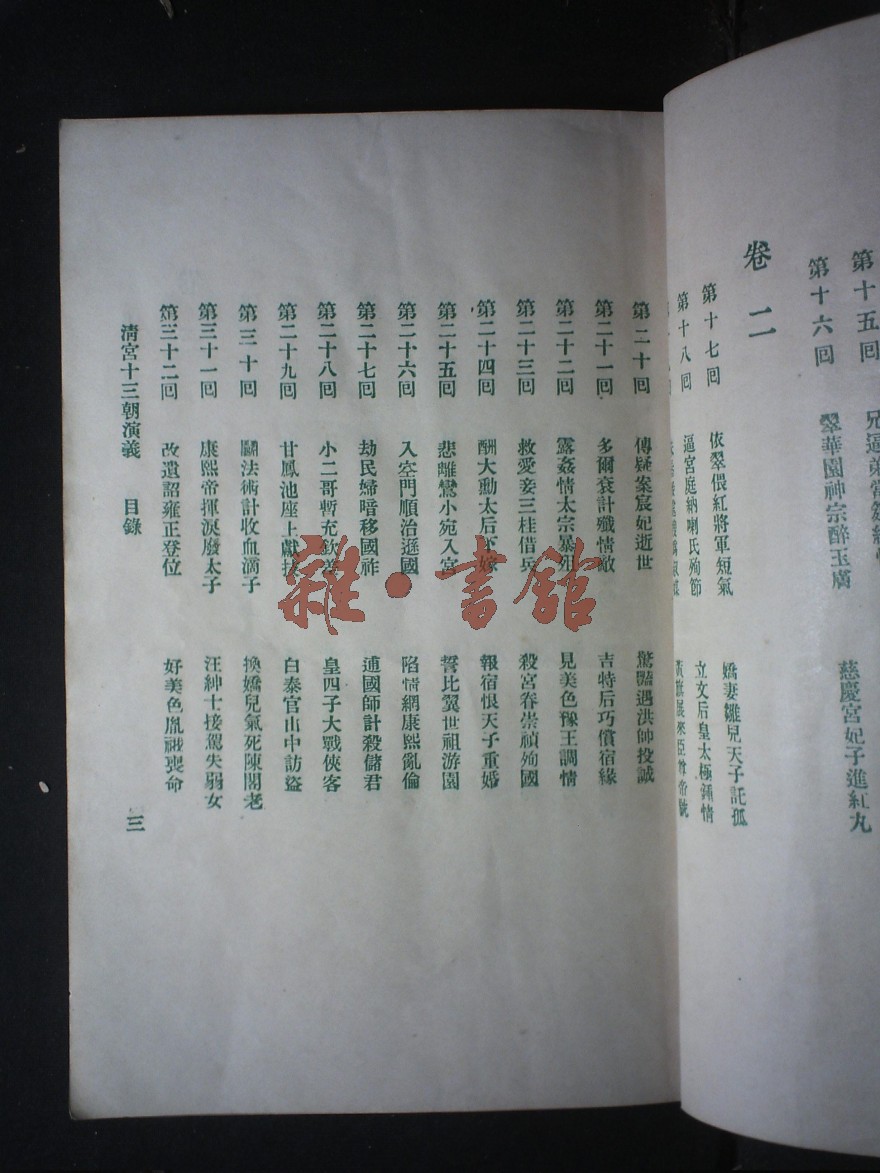 第十五回
第十六回 翠華園神宗醉玉膚 慈慶宮妃子進紅丸
卷二
第十七回 依翠偎紅將軍短氣 嬌妻雛兒天子託孤
第十八回 逼宮庭納喇氏殉節 立文后皇太極鍾情
第二十回 傳疑案宸妃逝世 驚豔遇洪帥投誠
第二十一回 多爾袞計殲情敵 吉特后巧償宿緣
第二十二回 露姦情太宗暴殂 見美色豫王調情
第二十三回 救愛妾三桂借兵 殺宮眷崇禎殉國
第二十四回 酬大勳太后下嫁 報宿恨天子重婚
第二十五回 悲離鸞小宛入宮 誓比翼世祖游園
第二十六回 入空門順治遜國 陷情網康熙亂倫
第二十七回 劫民婦暗移國祚 逋國師計殺儲君
第二十八回 小二哥暫充欽差 皇四子大戰俠客
第二十九回 甘鳳池座上獻技 白泰官山中訪盜
第三十回 鬭法術計收血滴子 換嬌兒氣死陳閣老
第三十一回 康熙帝揮淚廢太子 汪紳士接駕失弱女
第三十二回 改遺詔雍正登位 好美色胤禩喪命
清宮十三朝演義 目錄 三
雜·書館